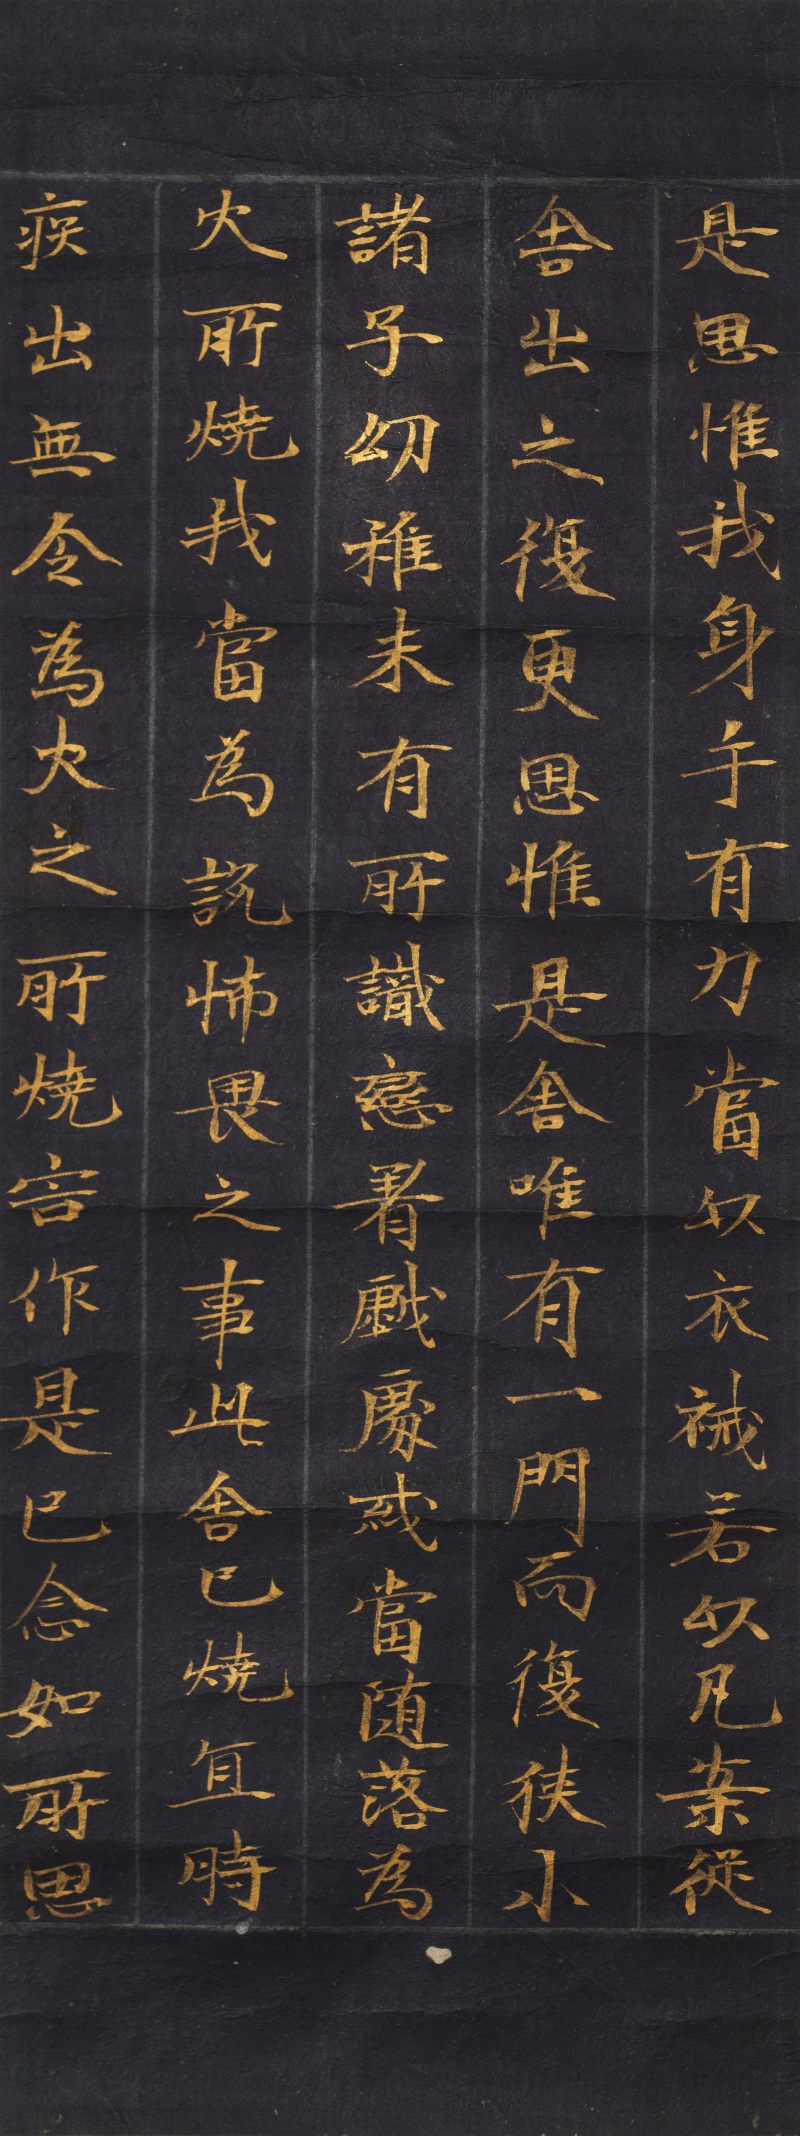 是思惟我身手有力當以衣裓若以几案從
舍出之復更思惟是舍唯有一門而復狹小
諸子幼稚未有所識戀著戲處或當随落為
火所燒我當為說怖畏之事此舍已燒宜時
疾出無令為火之所燒害作是已念如所思